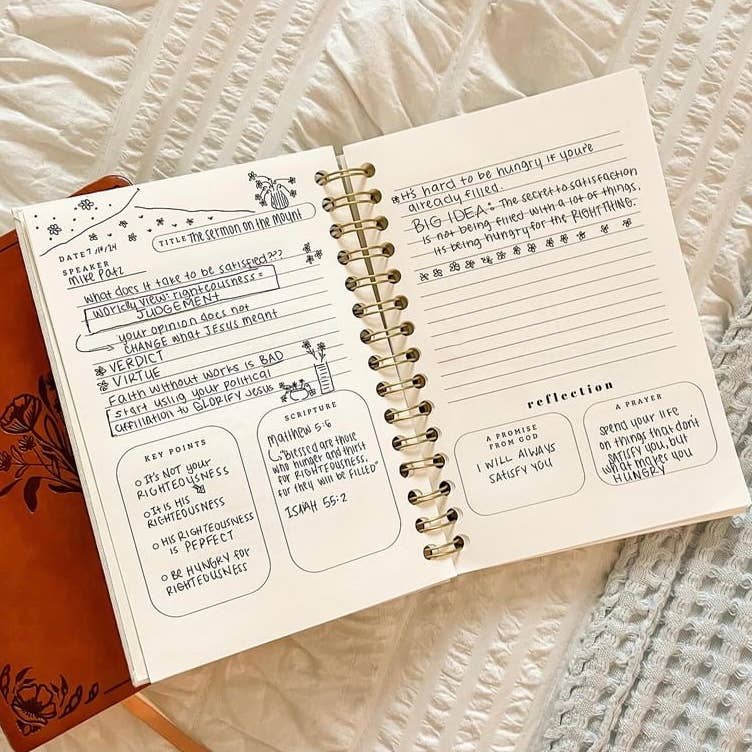 DATE 7/14/24
TITLE The sermon on the mount
SPEAKER
Mike Patz
what does it take to be satisfied???
worldly view: righteousness =
JUDGEMENT
your opinion does not
CHANGE what JESUS meant
VERDICT
VIRTUE
Faith without works is BAD
start using your political
affiliation to GLORIFY Jesus
KEY POINTS
It's NOT your
RIGHTEOUSNESS
IT is HIS
RIGHTEOUSNESS
HIS RIGHTEOUSNESS
is PERFECT
BE HUNGRY for
RIGHTEOUSNESS
SCRIPTURE
Matthew 5:6
"Blessed are those
who hunger and thirst
for RIGHTEOUSNESS,
for they will be FILLED"
ISAIAH 55:2
It's hard to be hungry if you're
already filled.
BIG IDEA: The secret to satisfaction
is not being filled with a lot of things,
its being hungry for the RIGHT THING.
reflection
A PROMISE
FROM GOD
I WILL ALWAYS
SATISFY YOU
A PRAYER
Spend your life
on things that don't
SATISFY you, but
what makes you
HUNGRY